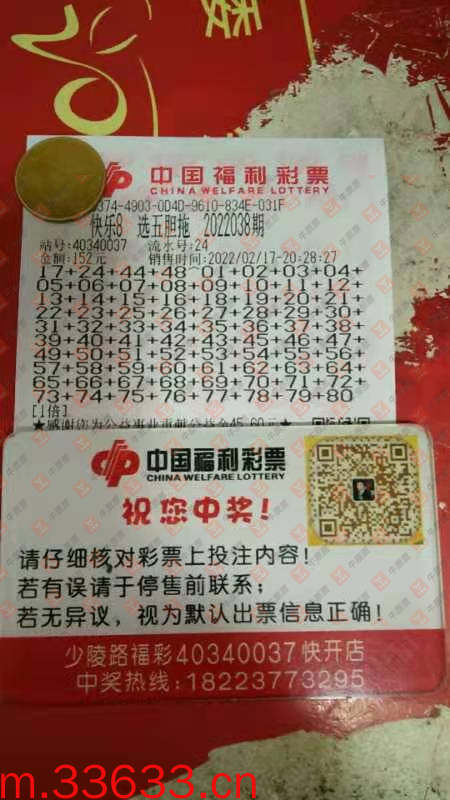 中国福利彩票
CHINA WELFARE LOTTERY
374-4903-0D4D-9610-834E-031F
快乐8 选五胆拖 2022038期
站号:40340037 流水号:24
金额:152元 销售时间:2022/02/17-20:28:27
17+24+44+48~01+02+03+04+
05+06+07+08+09+10+11+12+
13+14+15+16+18+19+20+21+
22+23+25+26+27+28+29+30+
31+32+33+34+35+36+37+38+
39+40+41+42+43+45+46+47+
49+50+51+52+53+54+55+56+
57+58+59+60+61+62+63+64+
65+66+67+68+69+70+71+72+
73+74+75+76+77+78+79+80
[1倍]
★感谢您为公益事业贡献公益金45.60元★
中国福利彩票
CHINA WELFARE LOTTERY
祝您中奖!
请仔细核对彩票上投注内容!
若有误请于停售前联系;
若无异议,视为默认出票信息正确!
少陵路福彩40340037快开店
中奖热线:18223773295
m.33633.cn